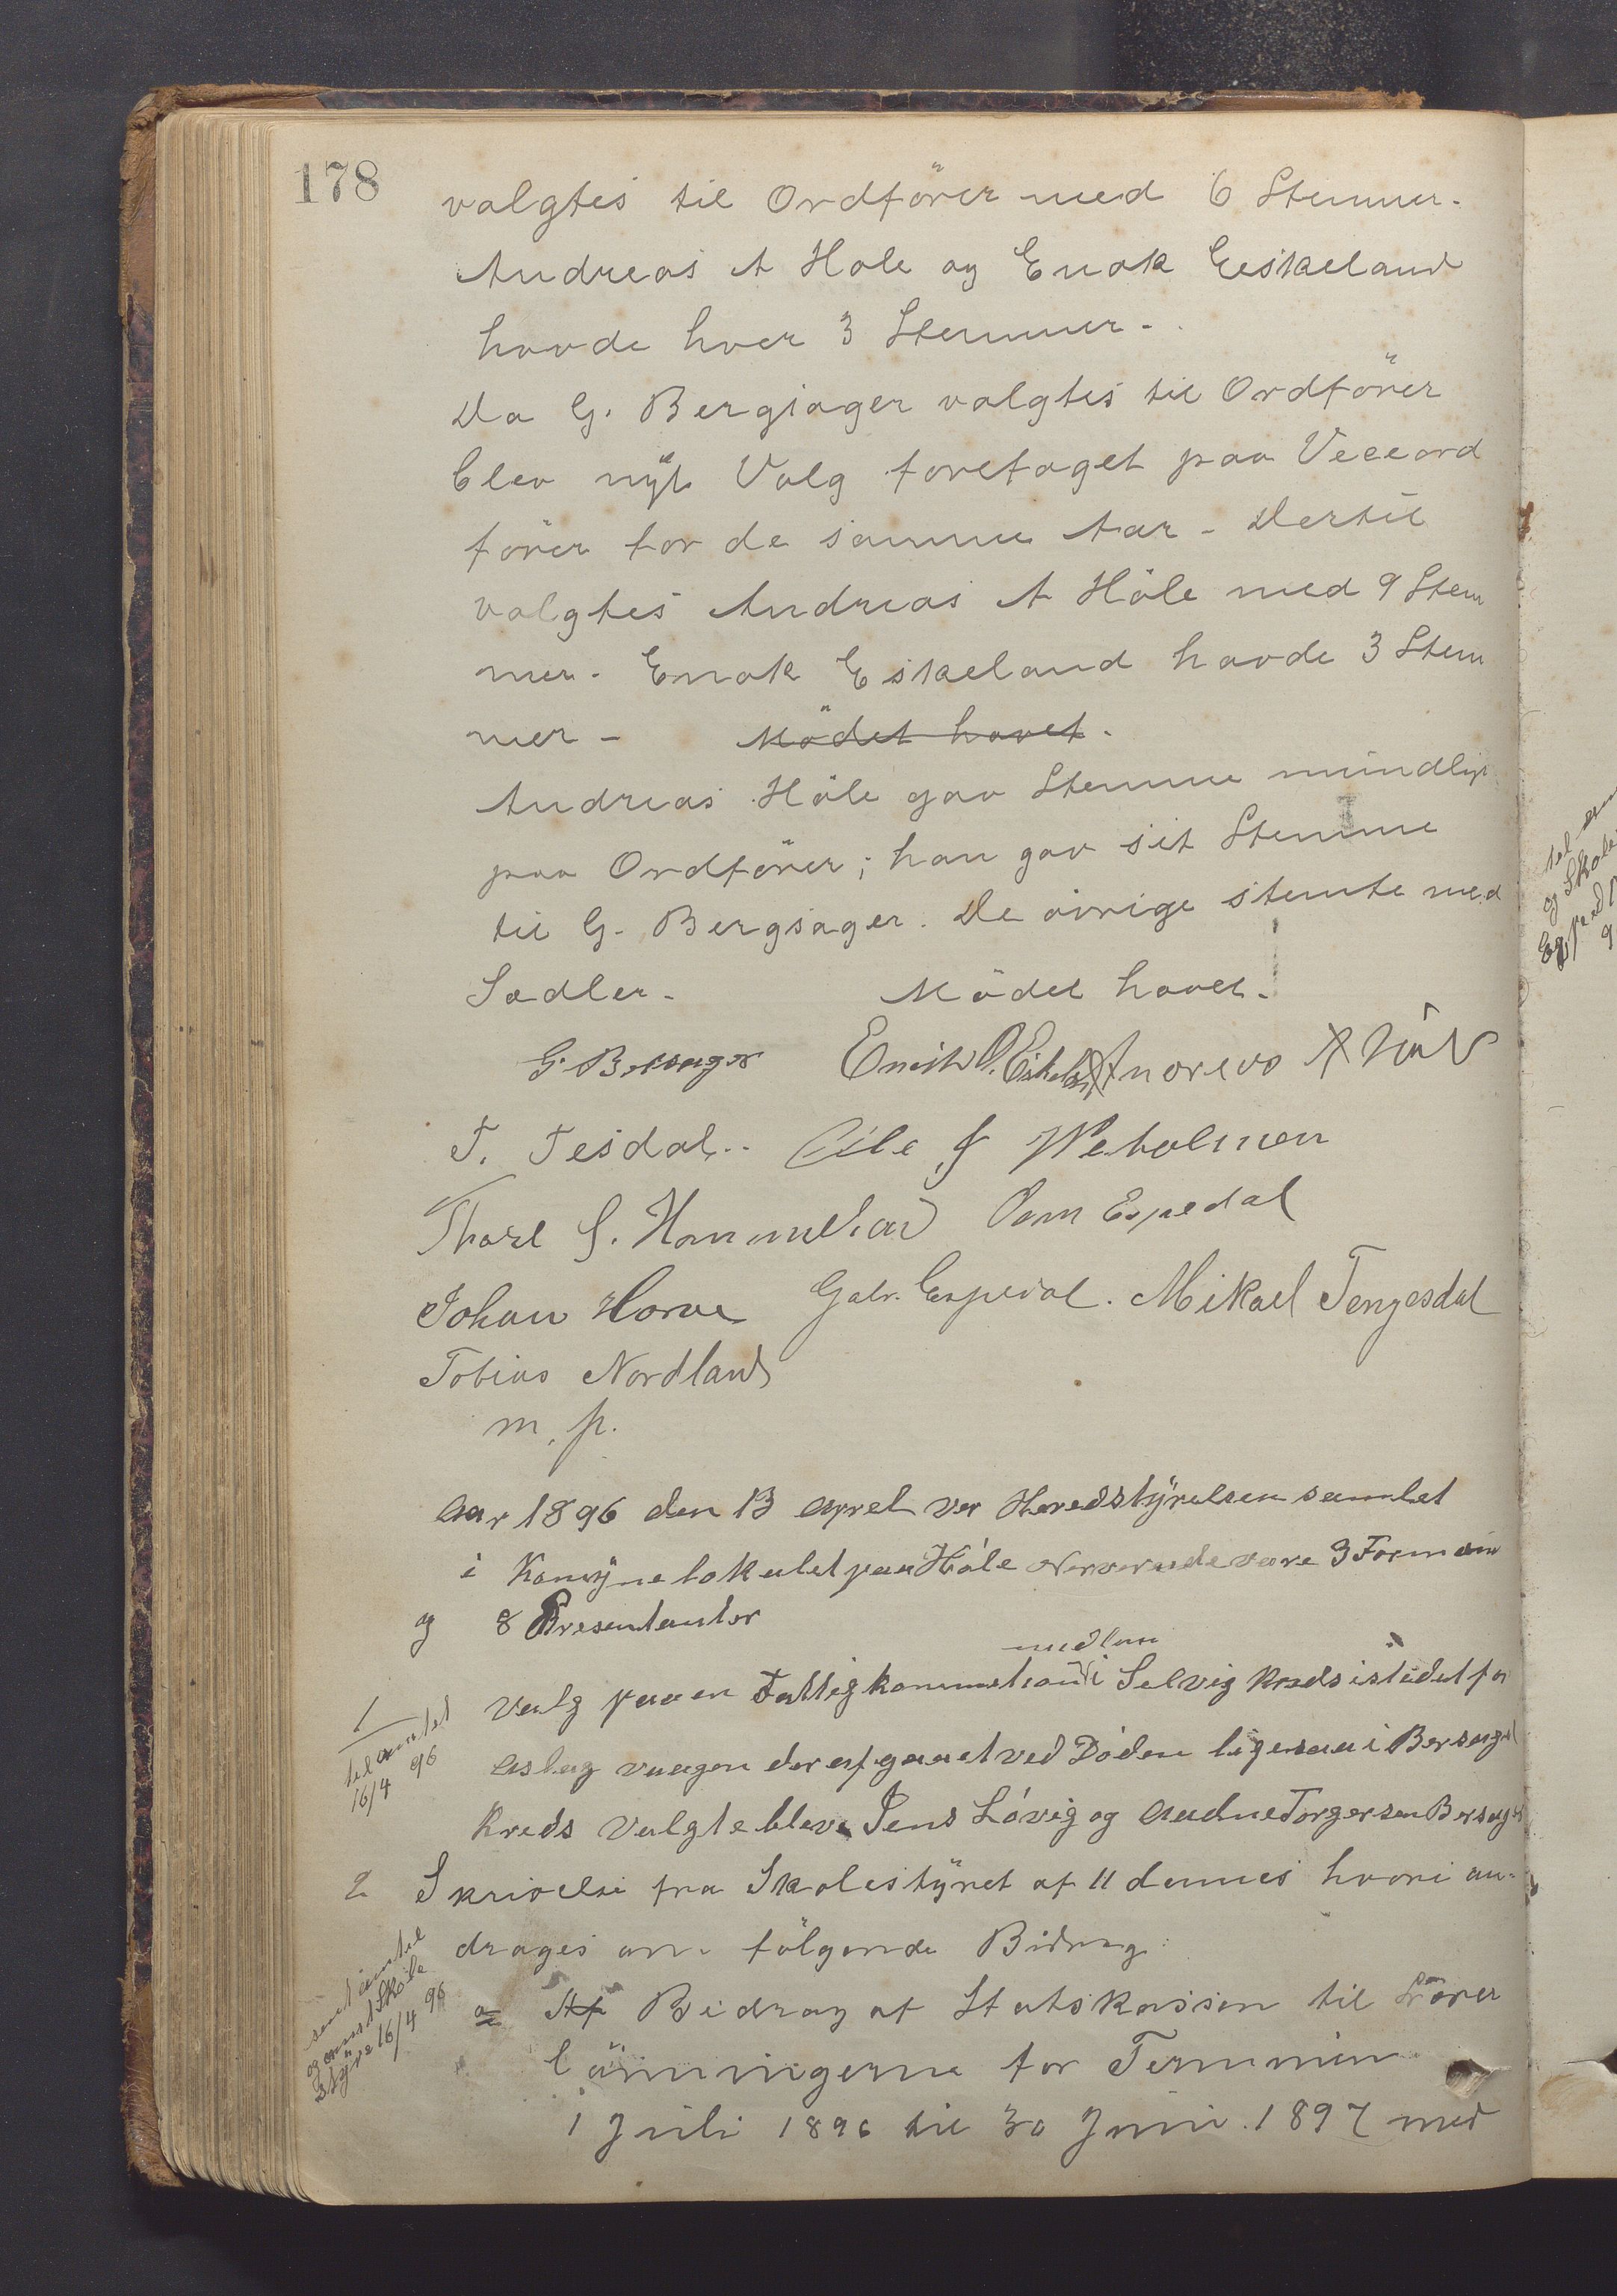 178
valgtes til Ordförer med 6 Stemmer.
Andreas A Hole og Enok Eeskeland
havde hver 3 Stemmer.
Da G. Bergsager valgtes til Ordförer
blev nyt Valg foretaget paa Viceord
förer for de samme Aar - Dertil
valgtes Andreas A Höle med 9 Stem
mer. Enok Eskeland havde 3 Stem
mer - Mödet hævet.
Andreas Höle gav Stemme mundligt
paa Ordförer; han gav sit Stemme
til G. Bergsager. De övrige stemte med
Sedler. Mödet hævet.
G. Bersager Enok O. Eskeland Andreas A Höle
T. Tesdal. Ole J Weholmen
Thorl S. Hommeland Osm Espedal
Johan Horve Gabr. Espedal. Mikael Tengesdal
Tobias Nordland
m. p.
Aar 1896 den 13 Aprel var Heredstÿrelsen samlet
i Komÿnelokalet paa Höle Nerverende vare 3 Formæn
og 8 Presentanter
1
til amtet
16/4 96
medlem
Valg paa en Fattigkommetion i Selvig Kreds istedet for
Aslag Vaagen der afgaaet ved Döden ligesaa i Bersagel
Kreds Valgte bleve Jens Lövig og Audne Torgersen Bersagel
2. Skrivelse fra Skolestÿret af 11 dennes hvori an-
drages om følgende Bidrag:
sent amtet
og Skole
Stÿre 16/4 96
a Af Bidrag af Statskassen til Lærer
lönningerne for Terminen
1 Juli 1896 til 30 Juni 1897 med